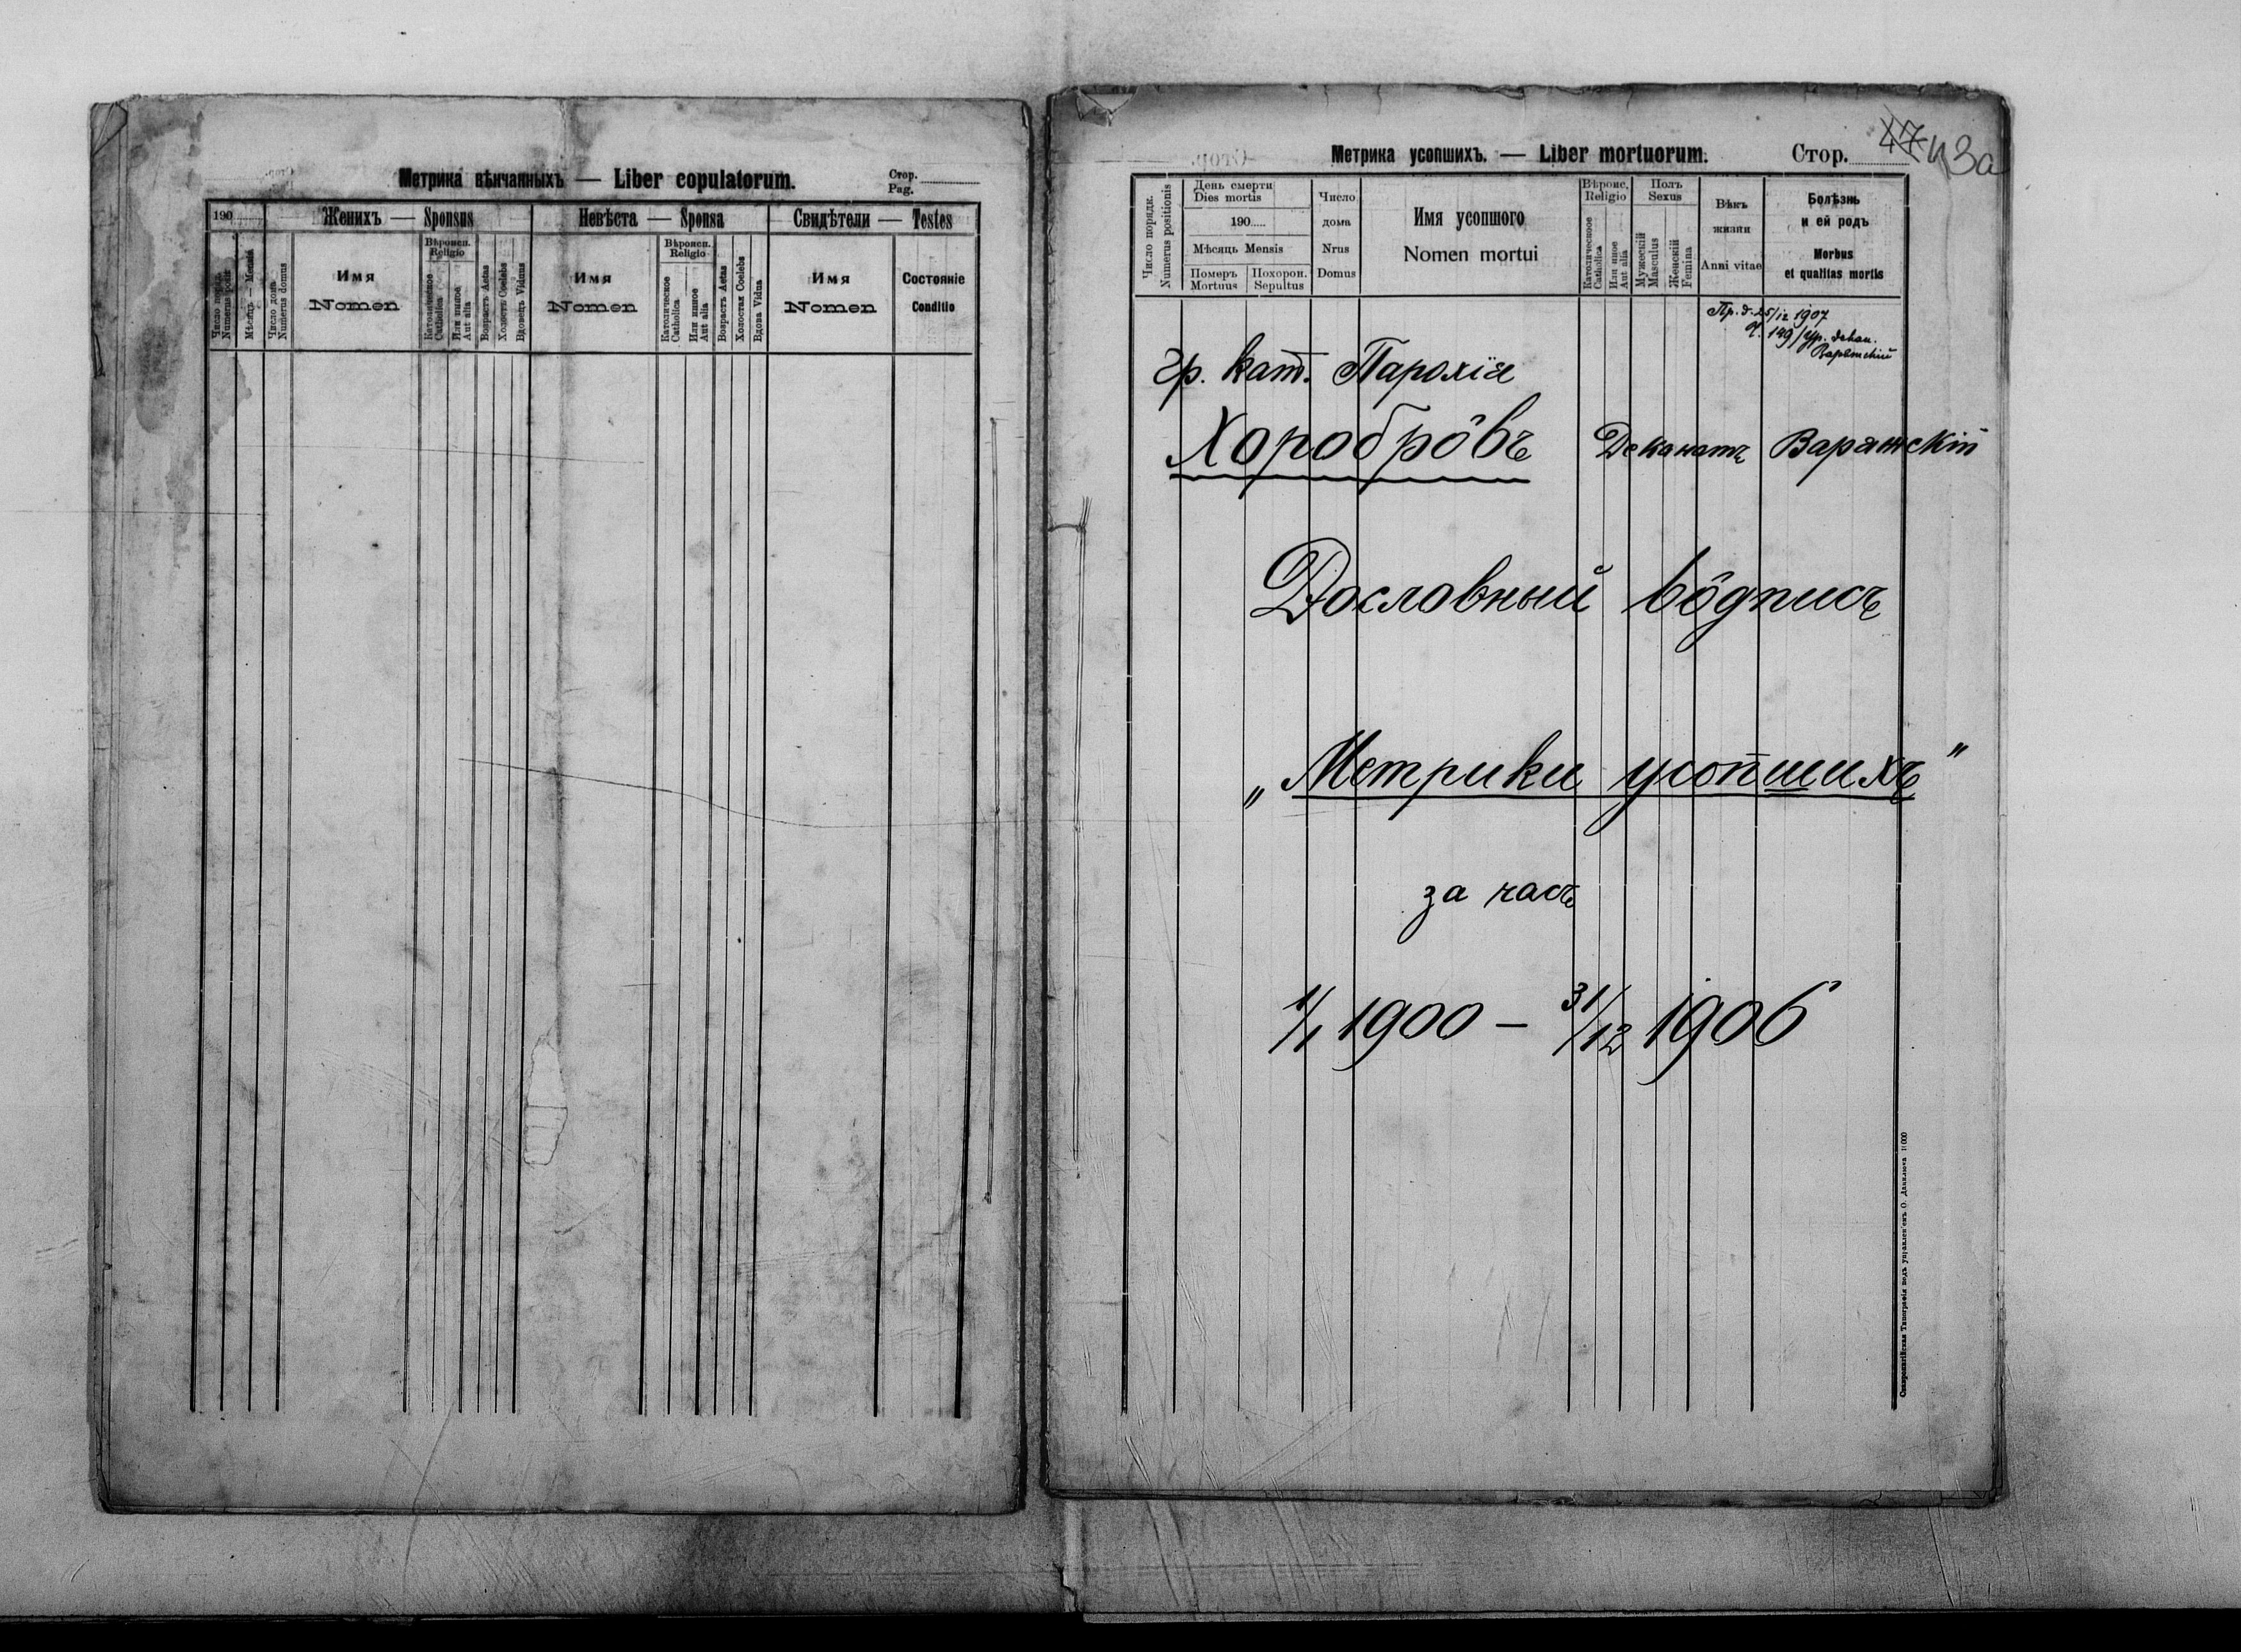 Метрика вѣнчанныхъ — Liber copulatorum.
Стор.
Pag.
190
Женихъ — Sponsus
Невѣста — Sponsa
Свидѣтели — Testes
Число поряд.
Numerus posit.
Мѣсяць — Mensis
Число дома
Numerus domus
Имя
Nomen
Вѣроисп.
Religio
Католическое
Catholica
Или иное
Aut alia
Возрастъ Aetas
Холостъ Coelebs
Вдовецъ Viduus
Имя
Nomen
Вѣроисп.
Religio
Католическое
Catholica
Или иное
Aut alia
Возрастъ Aetas
Холостая Coelebs
Вдова Vidua
Имя
Nomen
Состояніе
Conditio
Метрика усопшихъ. — Liber mortuorum.
Стор.
47
43а
Число порядк.
Numerus positionis
День смерти
Dies mortis
190
Мѣсяць Mensis
Померъ
Mortuus
Похорон.
Sepultus
Число
дома
Nrus
Domus
Имя усопшого
Nomen mortui
Вѣроис.
Religio
Католическое
Catholica
Или иное
Aut alia
Полъ
Sexus
Мужескій
Masculus
Женскій
Femina
Вѣкъ
жизни
Anni vitae
Болѣзнь
и ей родъ
Morbus
et qualitas mortis
Пр. д. 25/12 1907
Ч. 149/Ур. декан.
Варяжскій
гр. кат. Парохія
Хоробро̂въ Деканатъ Варяжскій
Дословный во̂дписъ
„Метрики усопшихъ"
за часъ
1/1 1900 — 31/12 1906
Ставропигійская Типографія подъ управленіемъ О. Данилюка